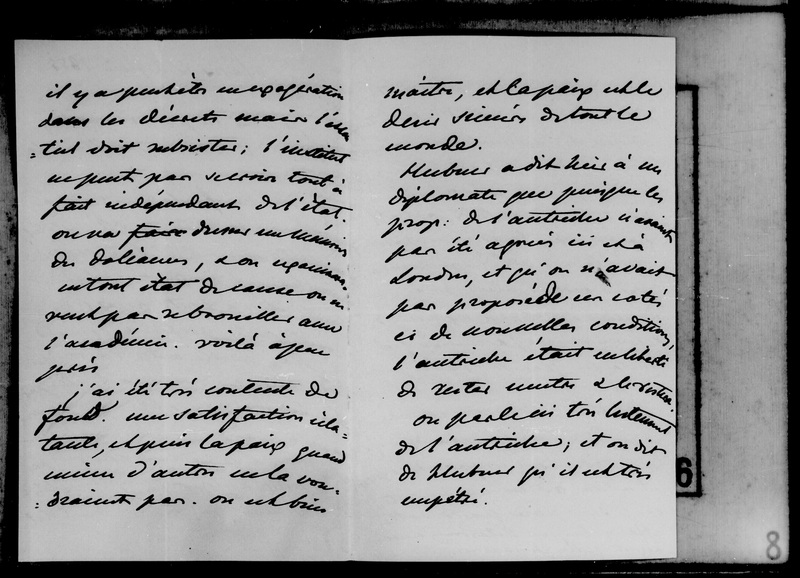 il y a peut-être un exagération
dans les décrets mais l'essen
=tiel doit subsister; l'institut
ne peut pas se croire tout à
fait indépendant de l'état.
on va faire dresser un mémoire
des doléances, & on examinera.
en tout état de cause on ne
veut pas se brouiller avec
l'académie. voilà à peu
près
j'ai été très contente de
fond. une satisfaction écla-
tante, et puis la paix quand
même d'autres ne la vou-
=draient pas. on est bien
maître, et la paix est le
désir sincère de tout le
monde.
Hubner a dit hier à un
diplomate que puisque les
prop: de l'autriche n'avaient
pas été agréés ici et à
Londres, et qu'on n'avait
pas proposé de ces cotés
ci de nouvelles conditions,
l'autriche était en liberté
de rester neutre
on parle ici très lestement
de l'autriche; et on dit
de Hubner qu'il est très
empêtré.
6
8